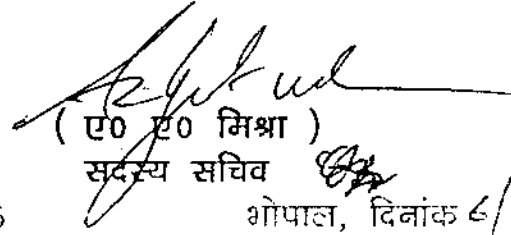 ( ए0 ए0 मिश्रा )
सदस्य सचिव
भोपाल, दिनांक 6/